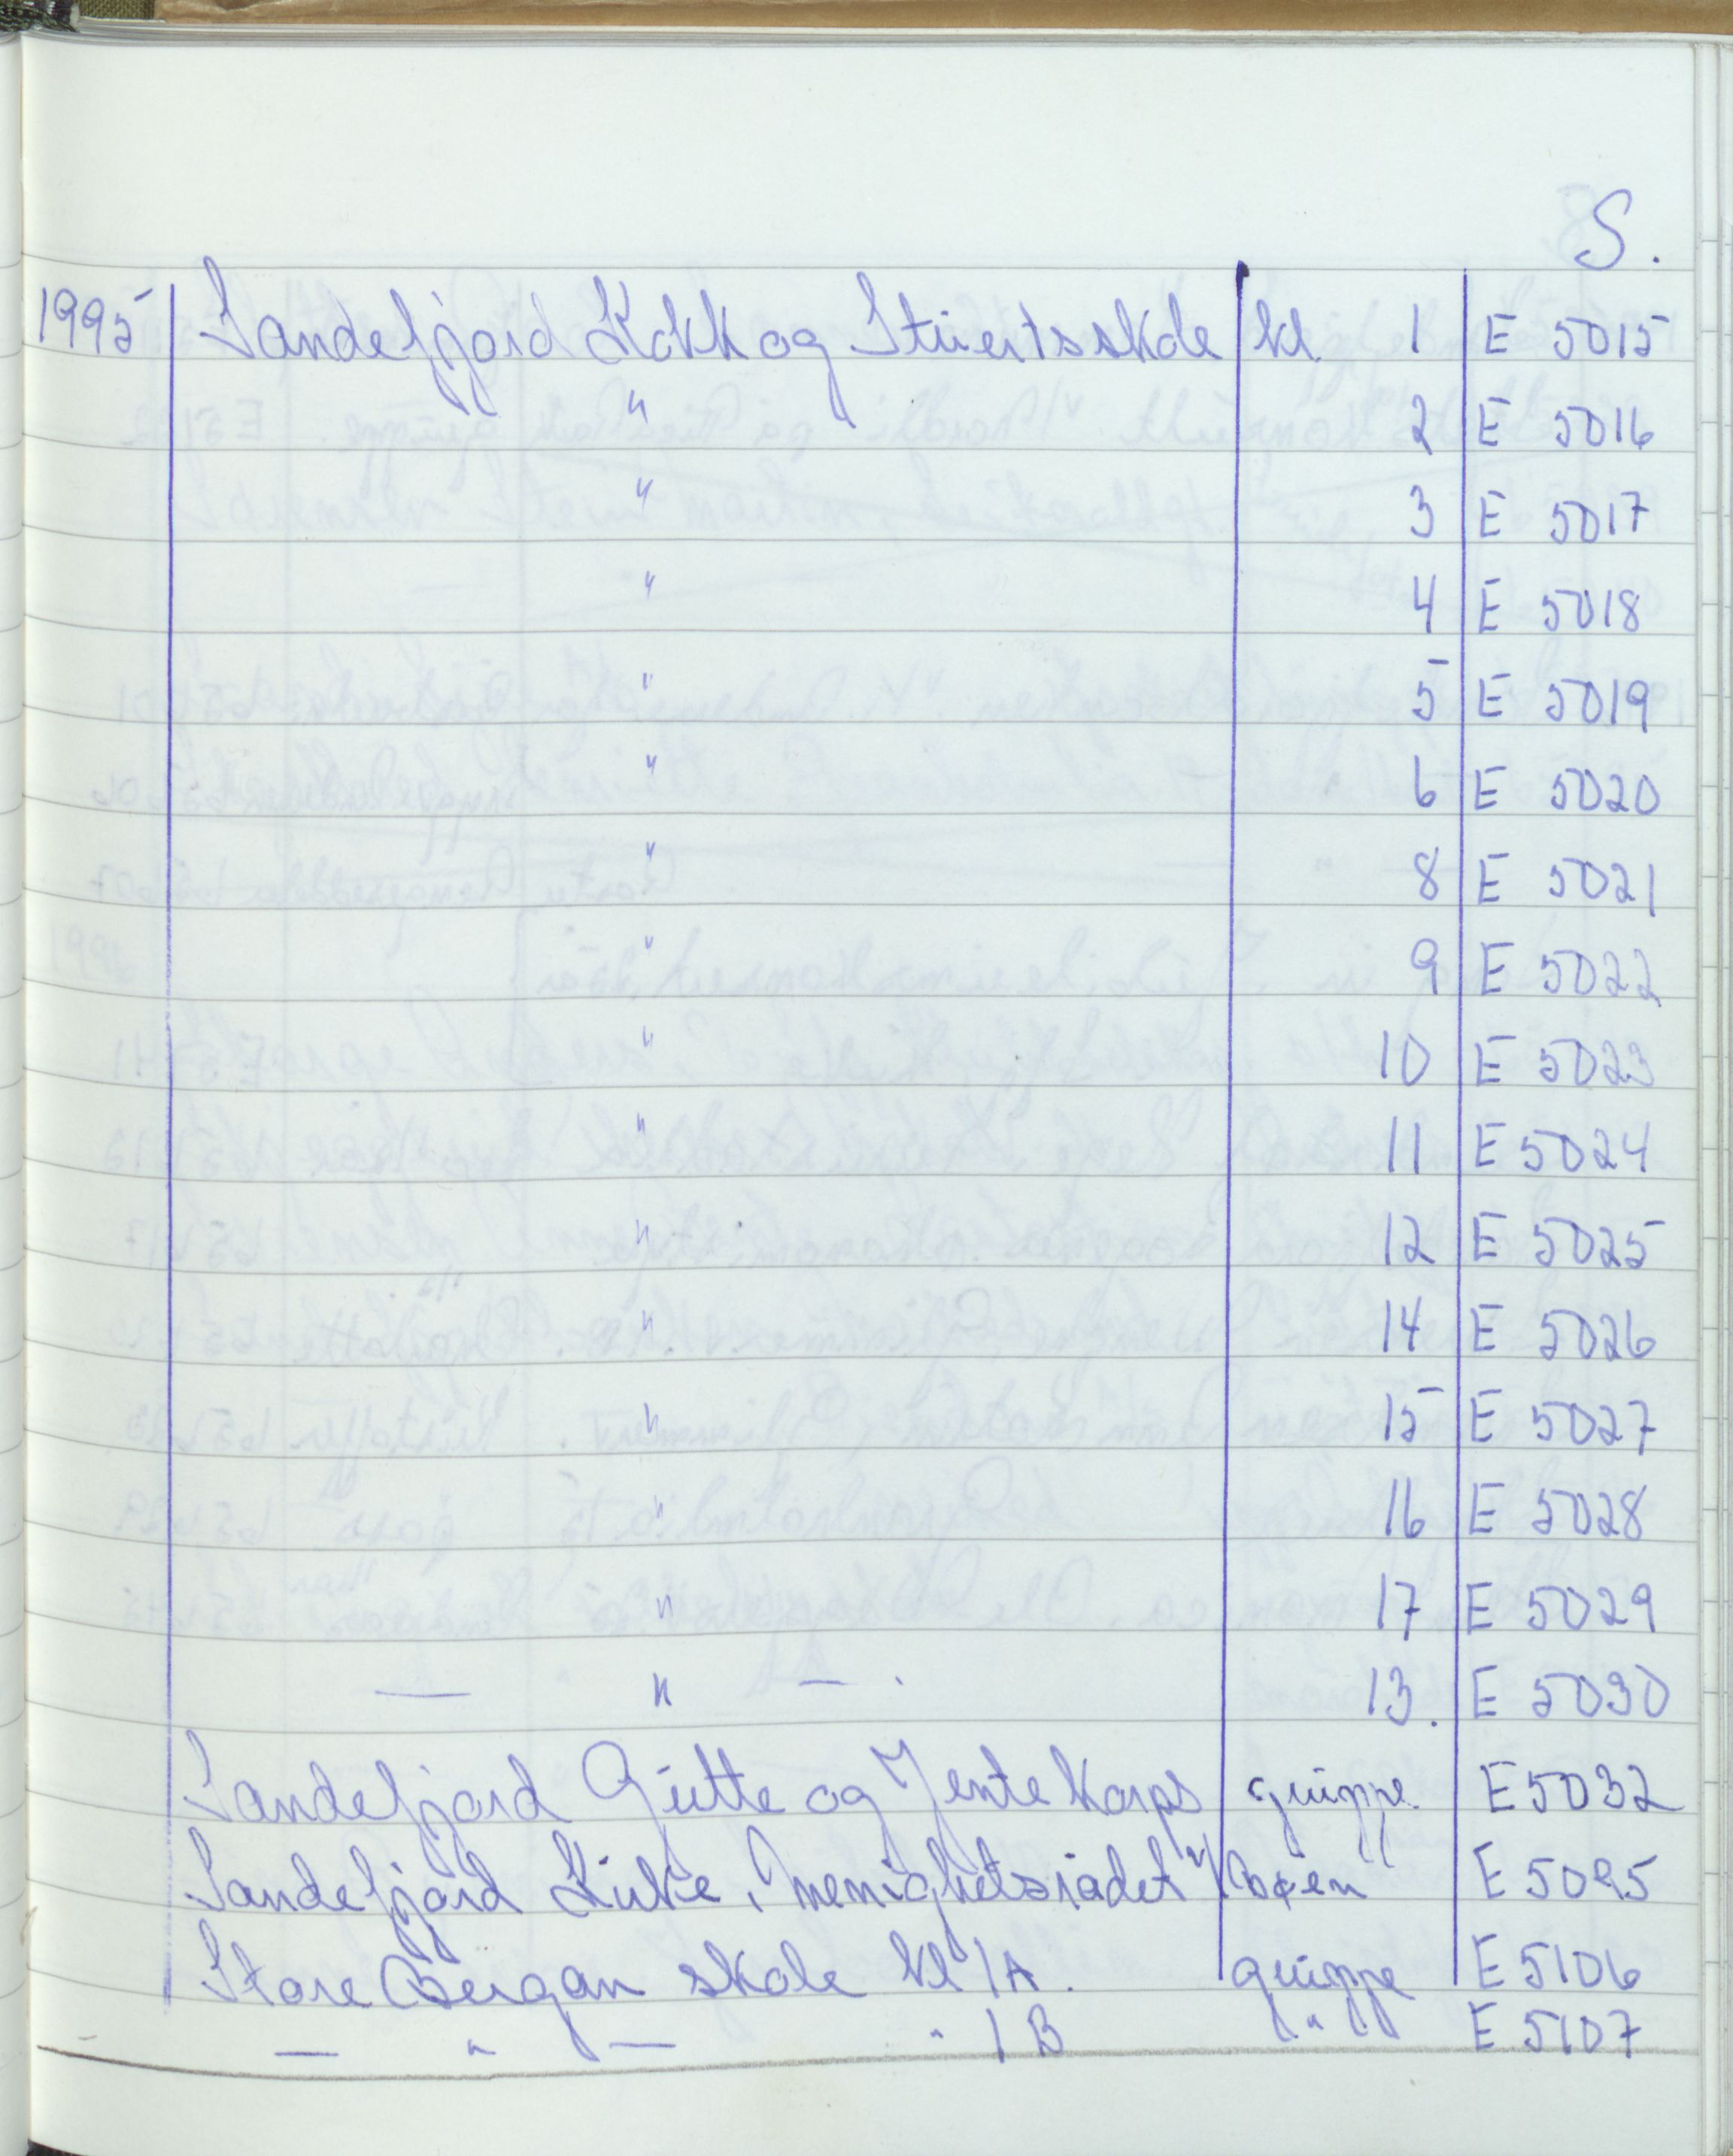 S.
1995 Sandefjord Kokk og Stuertsskole kl. 1 E 5015
" 2 E 5016
" 3 E 5017
" 4 E 5018
" 5 E 5019
" 6 E 5020
" 8 E 5021
" 9 E 5022
" 10 E 5023
" 11 E 5024
" 12 E 5025
" 14 E 5026
" 15 E 5027
" 16 E 5028
" 17 E 5029
— " — . 13. E 5030
Sandefjord Gutte og Jentekorps gruppe E 5032
Sandefjord Kirke, menighetsrådet v/ E 5095
Store Bergan skole kl 1A. gruppe E 5106
— " — " 1B " E 5107